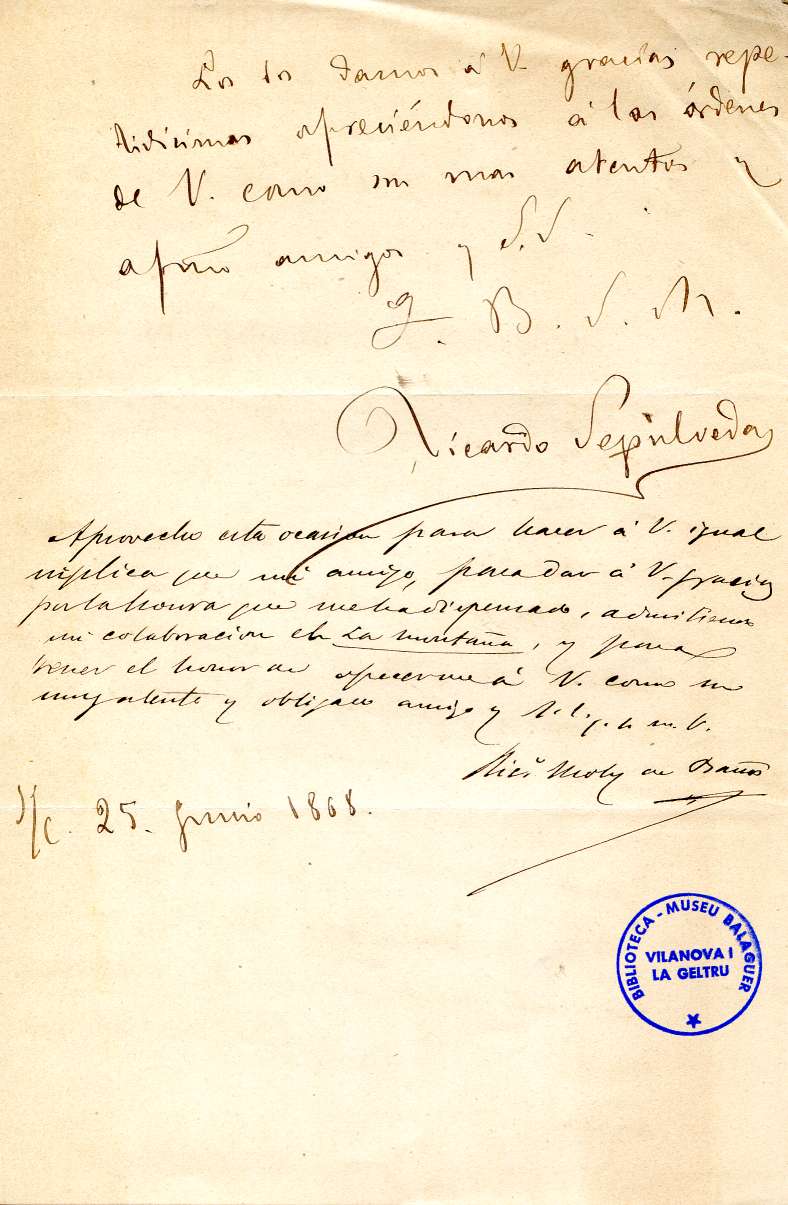 Los dos damos á V. gracias repe-
tidísimas ofreciéndonos á las órdenes
de V. como sus mas atentos y
afmo amigos y S.S.
Q. B. S. M.
Ricardo Sepúlveda
Aprovecho esta ocasion para hacer á V. igual
súplica que mi amigo, para dar á V. gracias
por la honra que me ha dispensado, admitiendo
mi colaboracion en La Montaña, y para
tener el honor de ofrecerme á V. como su
muy atento y obligado amigo y S.S. q. b. s. m.
Ricº Moly de Baños
S/C. 25. Junio 1868.
BIBLIOTECA - MUSEU BALAGUER
VILANOVA I
LA GELTRU